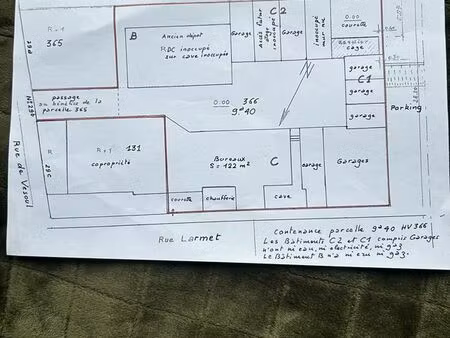 R+1
365
29d
B
Ancien dépôt
RDC inoccupé
sur cave inoccupée
Garage
Accès futur
C2
inoccupé
Garage
inoccupé
mur nu
0.00
courette
cage
garage
C1
garage
garage
Parking
passage
au bénéfice de la
parcelle 365
0.00 366
9a40
Rue de Vesoul
29c
R
R+1 131
copropriété
Bureaux
S = 122 m²
C
garage
Garages
courette
chaufferie
cave
Rue Larmet
contenance parcelle 9a40 HV366
Les Bâtiments C2 et C1 compris Garages
n'ont ni eau, ni électricité, ni gaz
Le Bâtiment B n'a ni eau ni gaz.